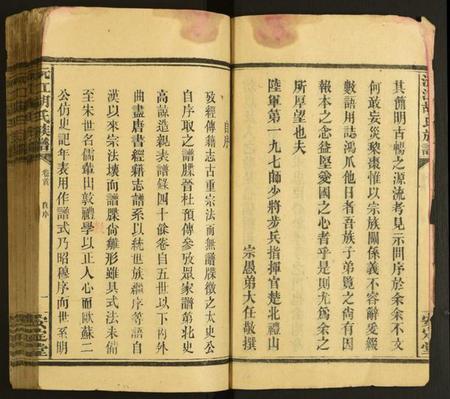 其簡明古親之源流考見示問序於余余不文
何敢妄災黎棗惟以宗族關係義不容辭爰綴
數語用誌鴻爪他日者吾族子弟覽之尙有因
報本之念益堅愛國之心者乎是則尤爲余之
所厚望也夫
陸軍第一九七師少將步兵指揮官楚北禮山
宗愚弟大任敬撰
自序
攷經傳籍志古重宗法而無譜牒徵之太史公
自序取之譜牒晉杜預傳參攷眾家譜第北史
高諒造親表譜錄四十餘卷自五世以下內外
曲盡唐書經籍志譜系以統世族繼序等語自
漢以來宗法壞而譜牒尙雖形雖具式法未備
至宋世名儒輩出敦禮學以正人心而歐蘇二
公仿史記年表用作譜式乃昭穆序向世系明
沅江胡氏族譜
卷首
自序
一
安定堂